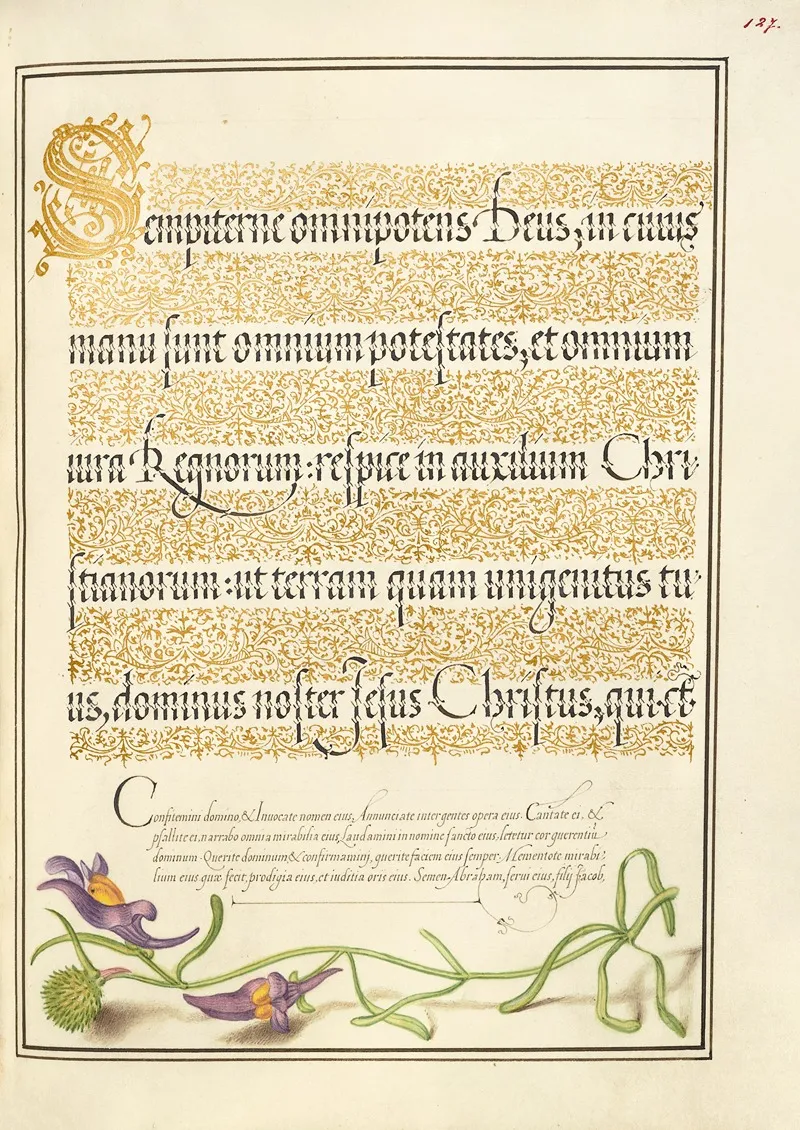 127.
Sempiterne omnipotens Deus, in cuius
manu sunt omnium potestates, et omnium
iura Regnorum: respice in auxilium Chri
stianorum: ut terram quam unigenitus tu
us, dominus noster Jesus Christus, qui &
Confitemini domino, & Invocate nomen eius, Annunciate inter gentes opera eius. Cantate ei, &
psallite ei, narrabo omnia mirabilia eius, Laudamini in nomine sancto eius, letetur cor querentiū
dominum. Querite dominum, & confirmamini, querite faciem eius semper. Mementote mirabi-
lium eius quæ fecit, prodigia eius, et iuditia oris eius. Semen Abraham, serui eius, filij Jacob,